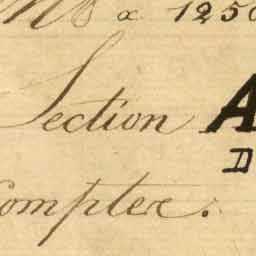 1250
Section A
D
Compter.